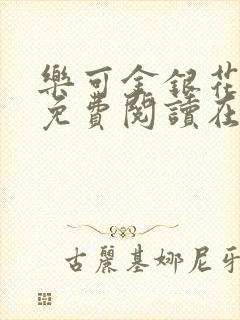 樂可金銀花
免費閱讀在
古麗基娜尼牙